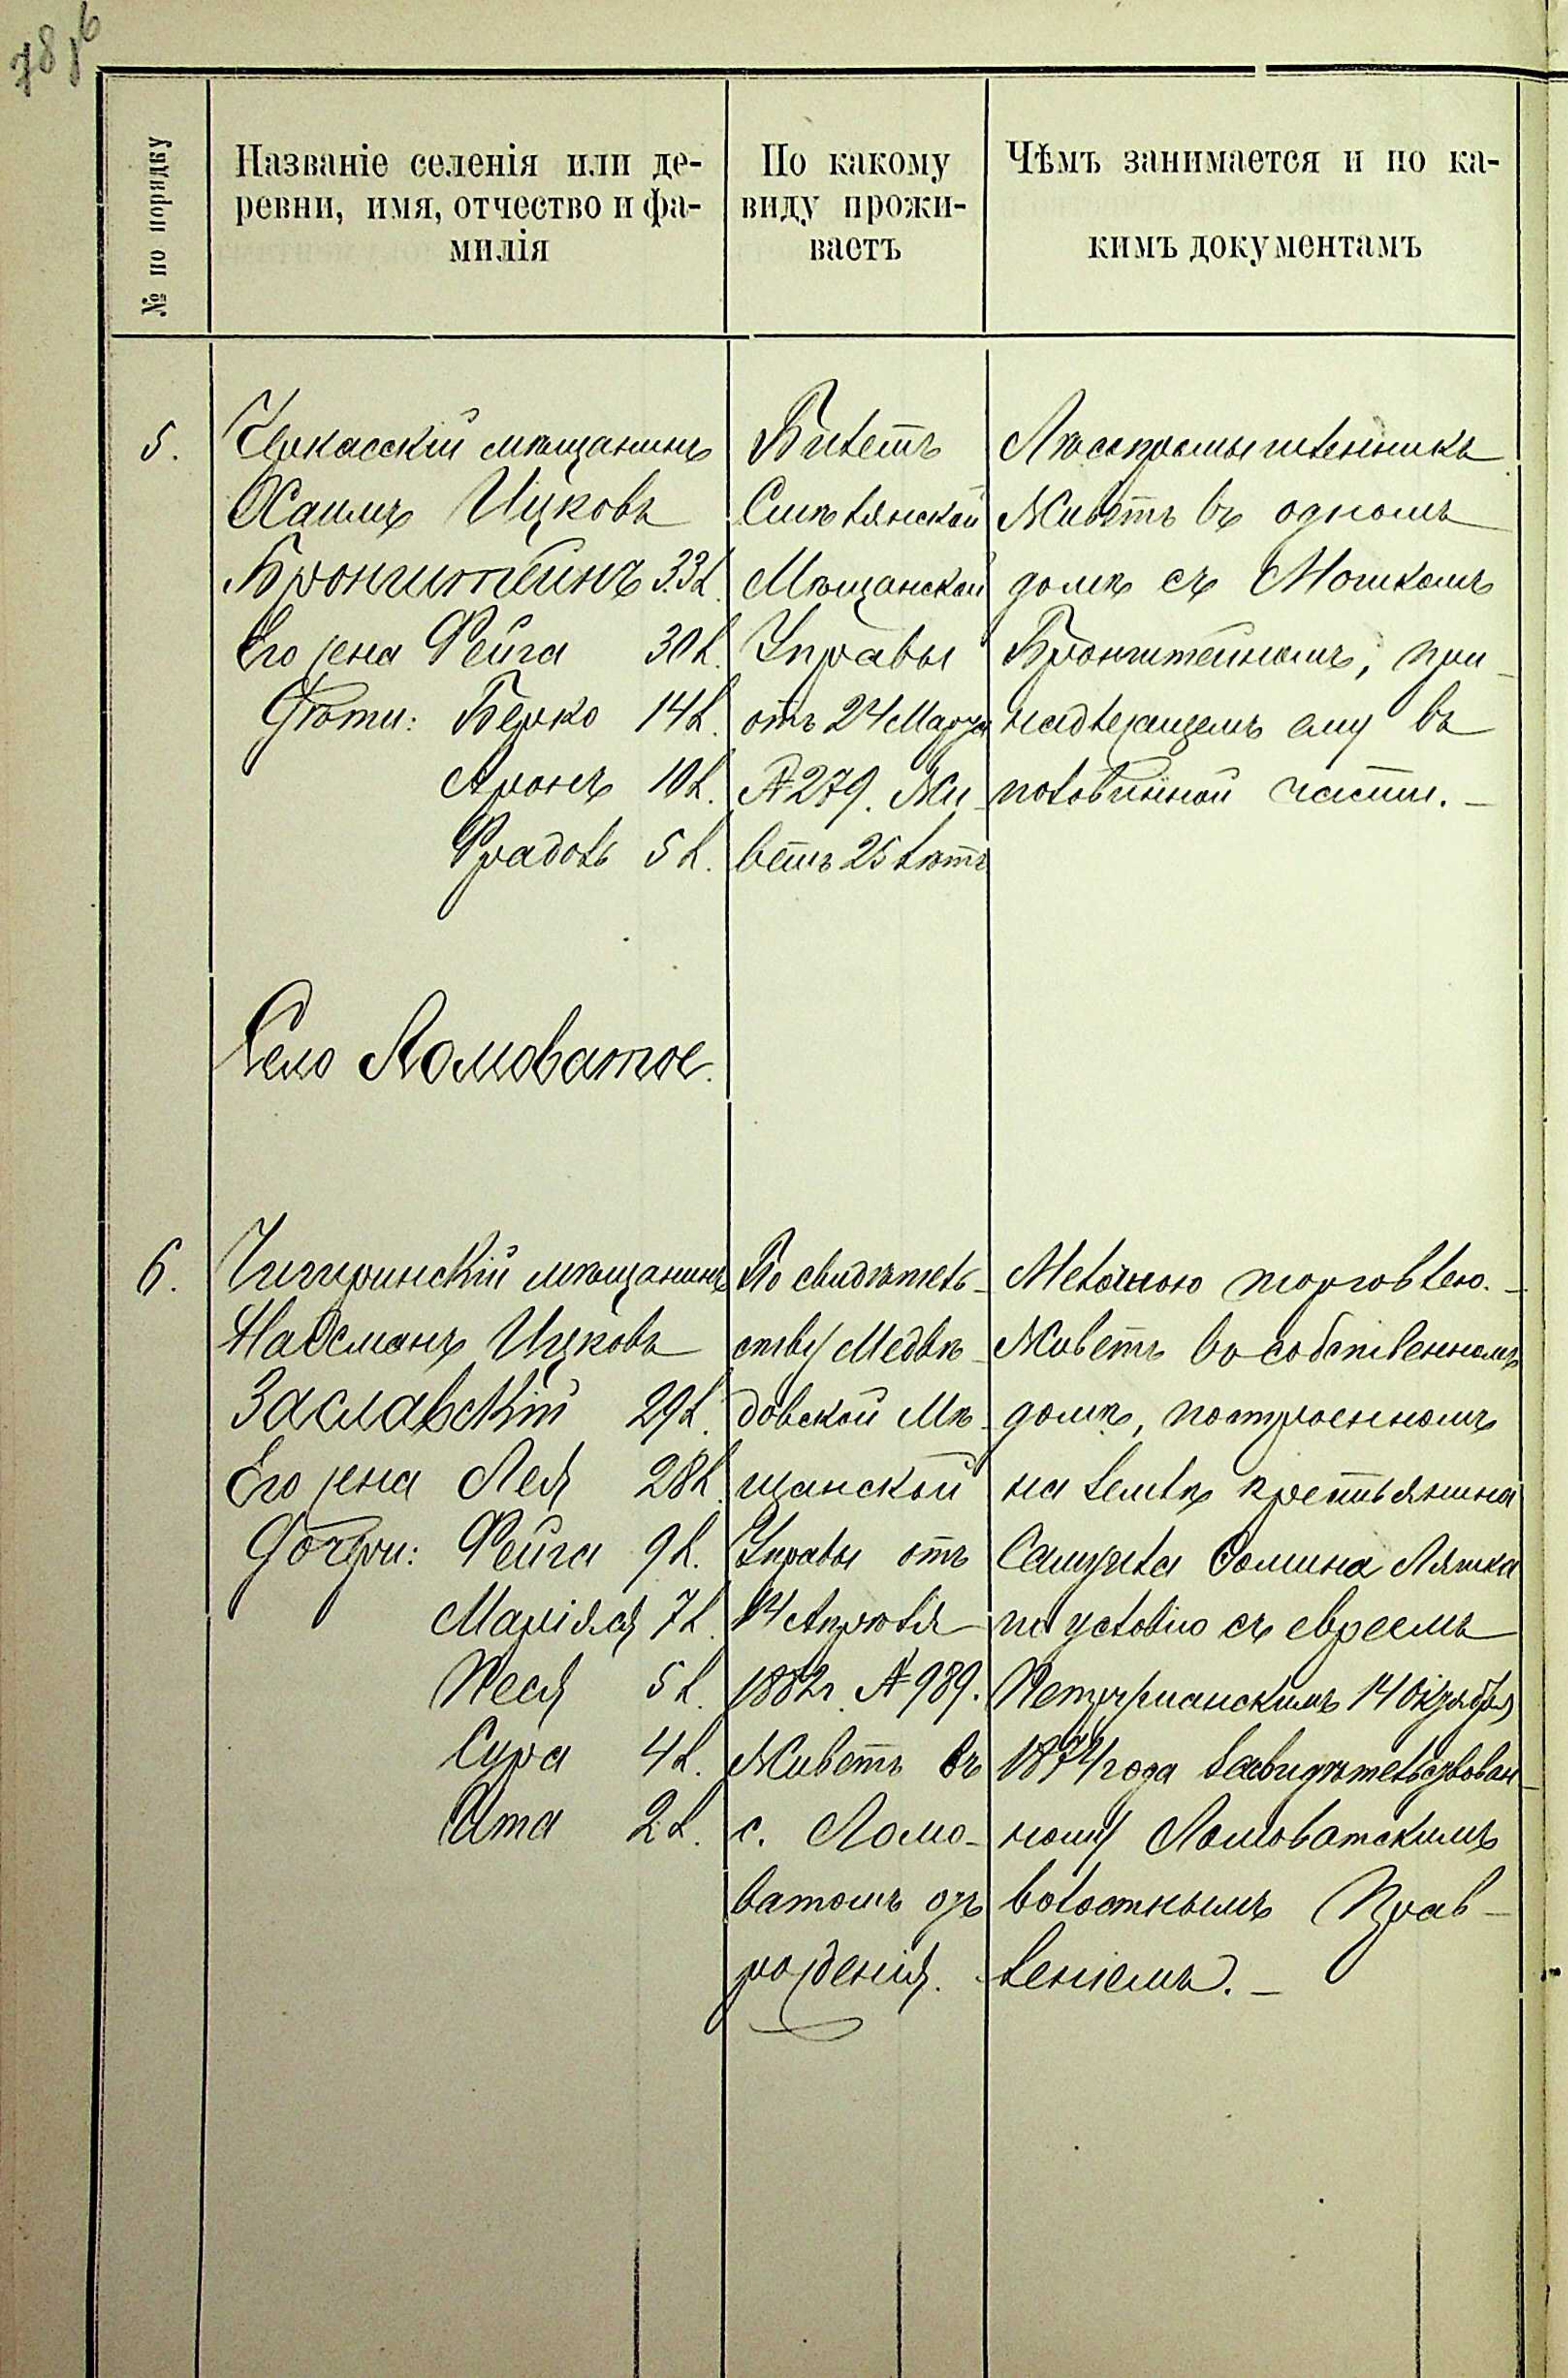 № по порядку
Названіе селенія или де-
ревни, имя, отчество и фа-
милія
По какому
виду прожи-
ваетъ
Чѣмъ занимается и по ка-
кимъ документамъ
5.
Черкасскій мѣщанинъ
Хаимъ Ицковъ
Бронштейнъ 33 л.
Его жена Фейга 30 л.
Дѣти: Берко 14 л.
Аронъ 10 л.
Фрадель 5 л.
Билетъ
Смѣлянской
Мѣщанской
Управы
отъ 24 Марта
№ 279. Жи-
ветъ 25 лѣтъ
Лѣсопромышленникъ
Живетъ въ одномъ
домѣ съ Мошкомъ
Бронштейномъ, при-
надлежащемъ ему въ
половинной части. —
Село Ломоватое.
6.
Чигиринскій мѣщанинъ
Нахманъ Ицковъ
Заславскій 29 л.
Его жена Лея 28 л.
Дочери: Фейга 9 л.
Маріяся 7 л.
Песя 5 л.
Сура 4 л.
Ита 2 л.
По свидѣтель-
ству Медвѣ-
довской Мѣ-
щанской
Управы отъ
14 Апрѣля
1882 г. № 989.
Живетъ въ
с. Ломо-
ватомъ отъ
рожденія.
Мелочною торговлею. —
Живетъ въ собственномъ
домѣ, построенномъ
на землѣ крестьянина
Самуила Ляшка
по условію съ евреемъ
14 Октября
1874 года засвидѣтельствован-
ному Ломоватскимъ
волостнымъ Прав-
леніемъ. —